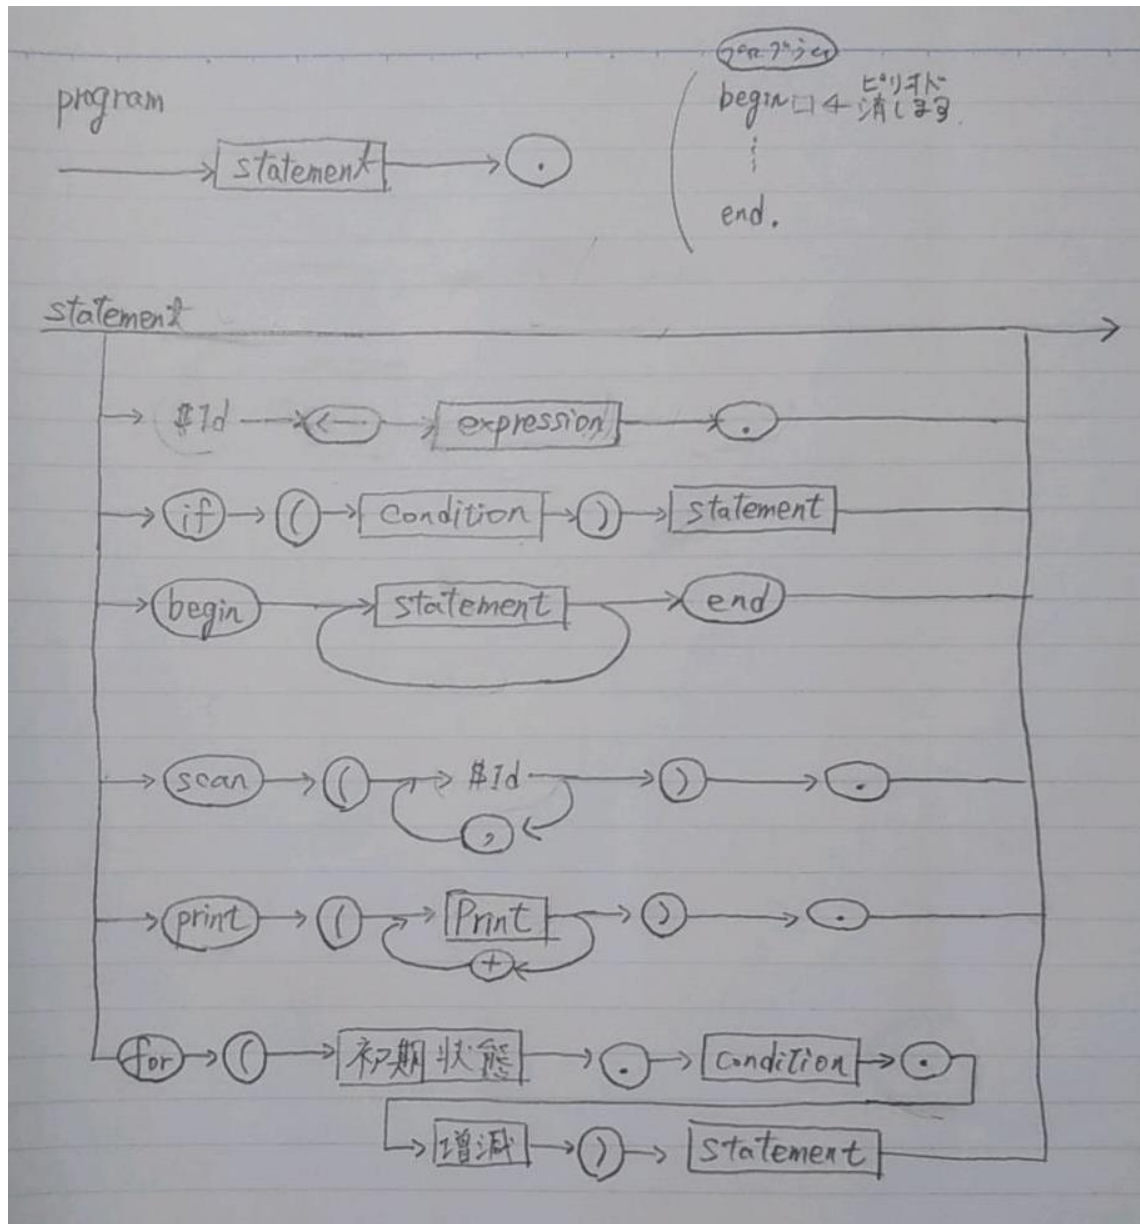 program
statement .
begin □ ← ピリオド
消します
⋮
end.
statement
$Id <— expression .
if ( Condition ) statement
begin statement end
scan ( $Id ) .
,
print ( Print ) .
+
for ( 初期状態 . Condition .
増減 ) statement